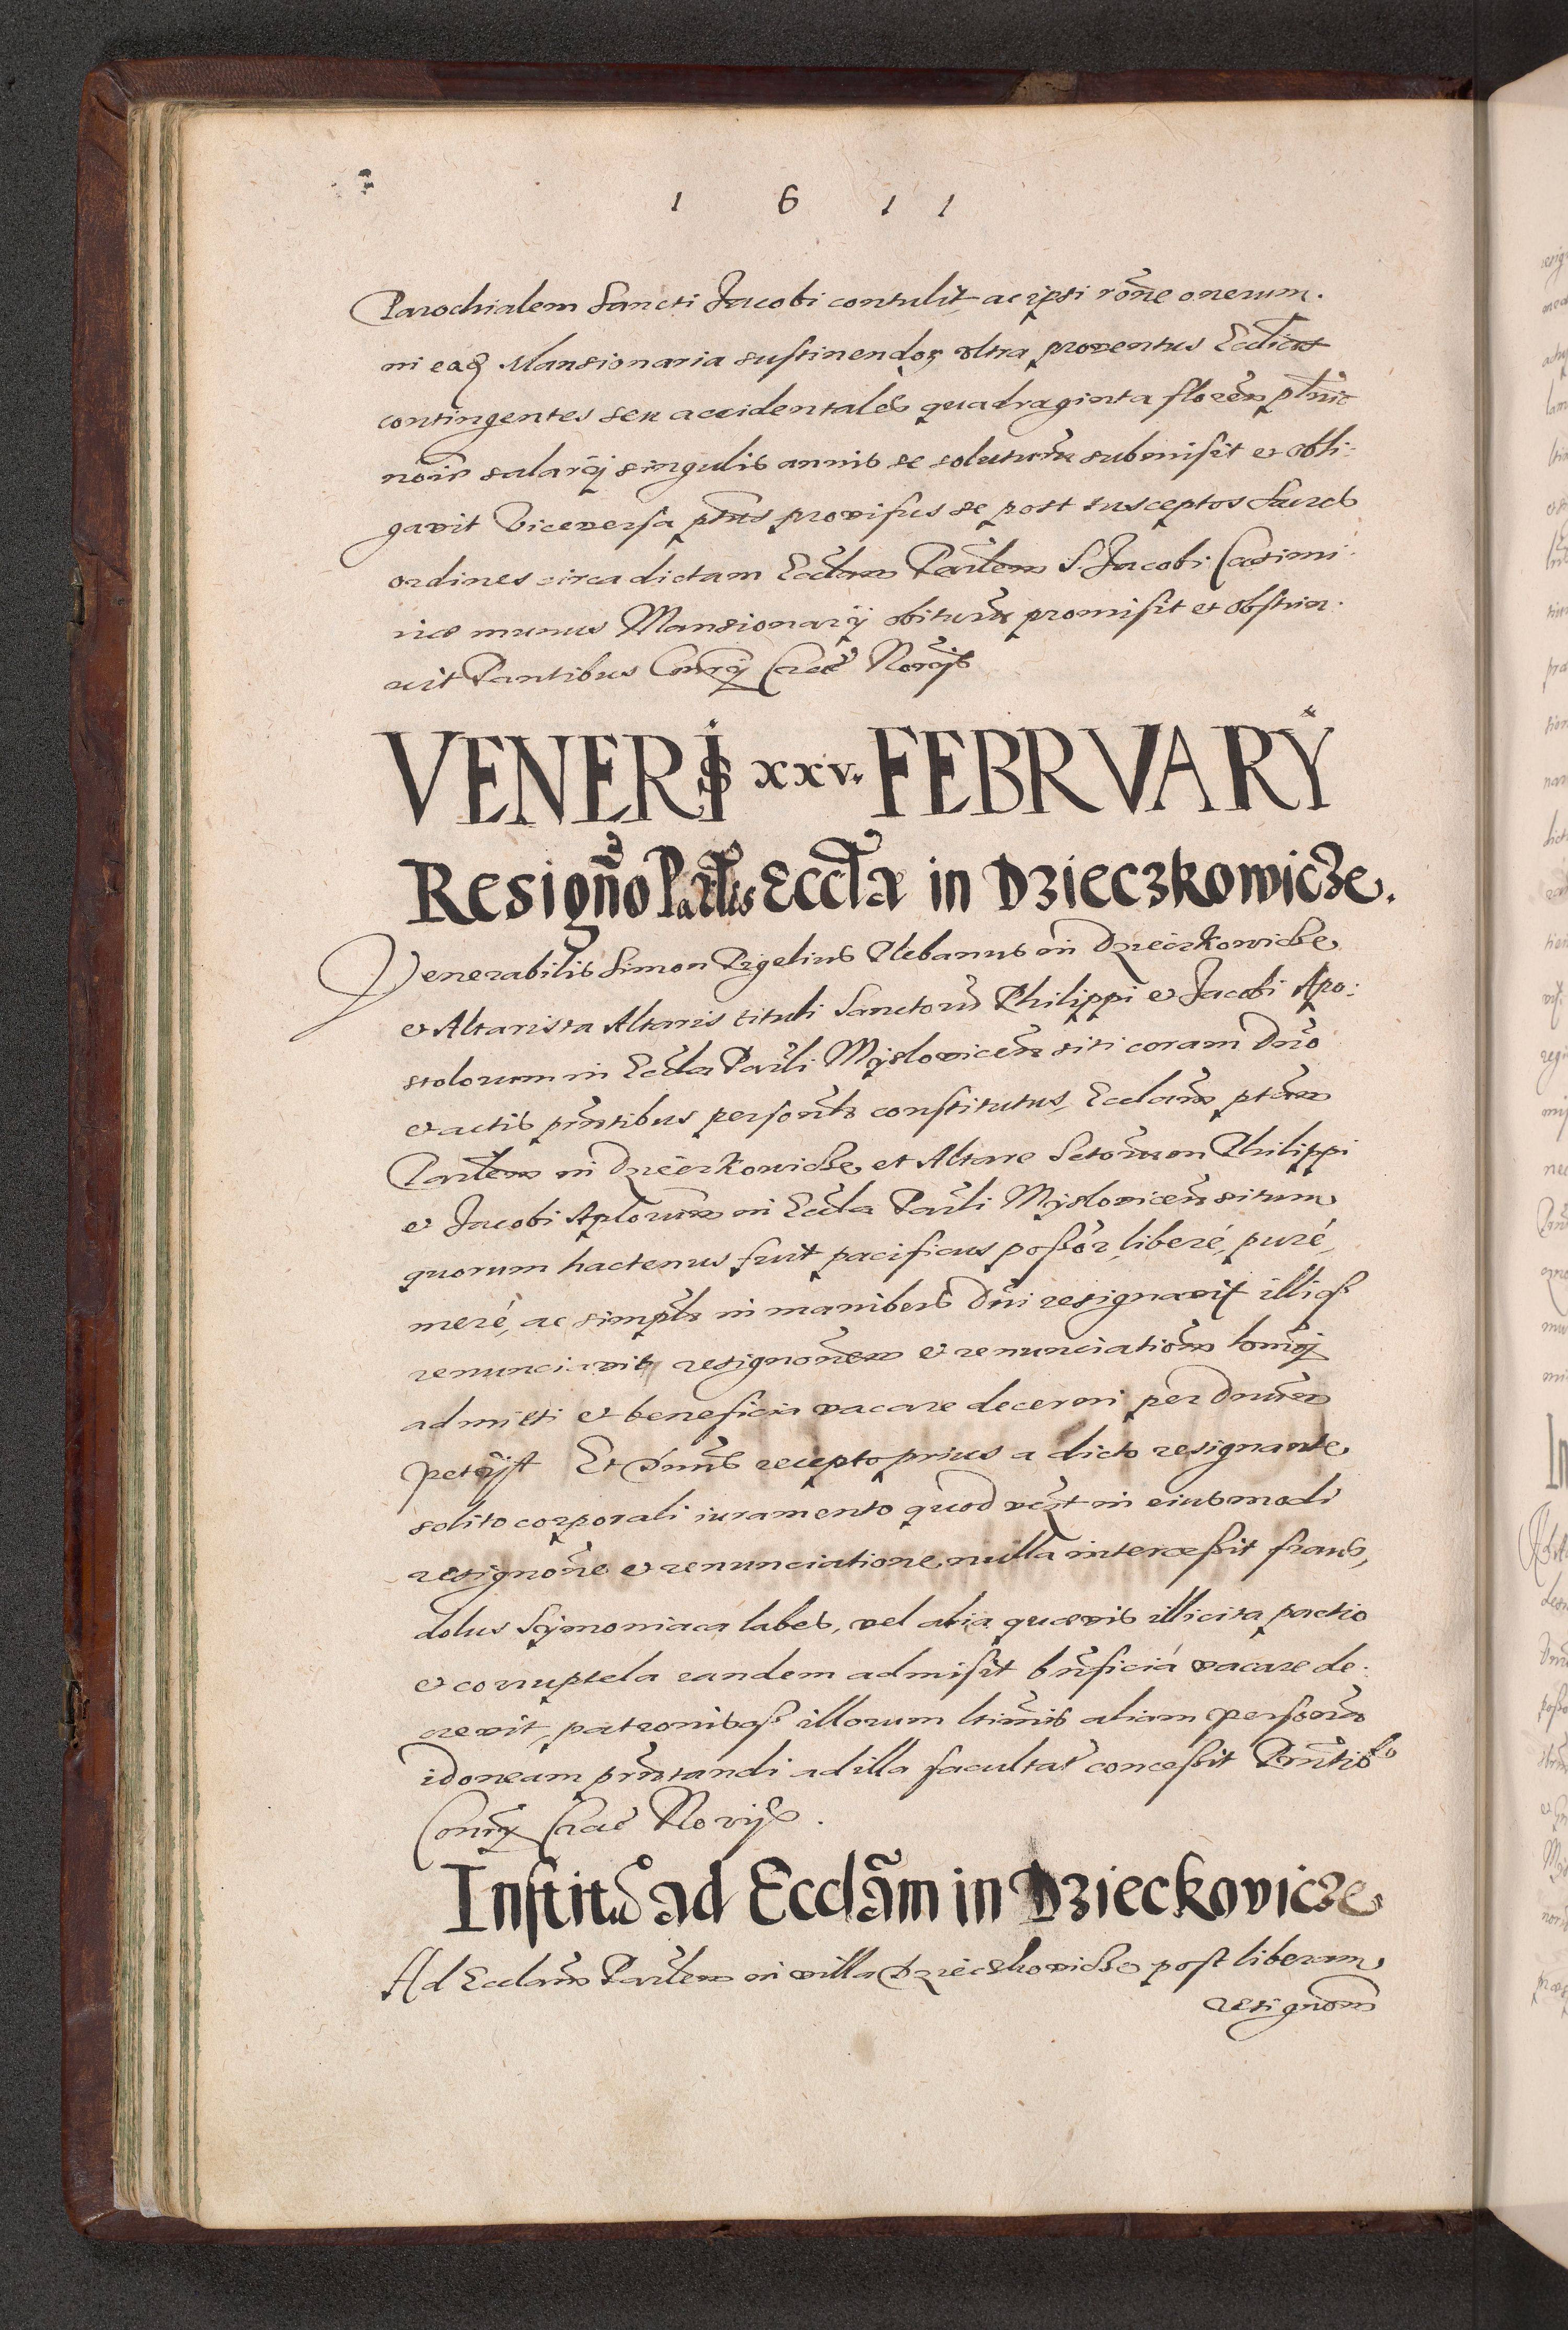 1 6 1 1
Parochialem Sancti Jacobi contulit, ac ipsi rõne onerum.
in eaq Mansionaria sustinendoꝝ vltra proventus Ecclicos
contingentes seu accidentales quadraginta floren
salarij singulis annis se soluturũ submisit et obli:
gavit Viceversa provisus se post susceptos Sacros
ordines circa dictam Ecclam Parlem S. Jacobi Casimi:
riæ munus Mansionarij obiturũ promisit et obstrin.
xit Pñtibus
VENERIS xxv. FEBRVARY
Resignõ Parlis Ecclæ in Dzieczkowicze.
Venerabilis Simon Rigelius Plebanus in Dzieczkowicze
et Altarista Altaris tituli Sanctorũ Philippi et Jacobi Apo:
stolorum in Eccla Parli Myslovicen siti coram Dño
et actis pñtibus personlr constitutus, Ecclam ptam
Parlem in Dzieczkowicze et Altare Sctorum Philippi
et Jacobi Aplorum in Eccla Parli Myslovicen situm
quorum hactenus fuit pacificus possor, liberé, puré,
meré, ac simplr in manibus Dñi resignavit illisqȝ
renunciavit, resignonem et renunciationẽ homõi
admitti et beneficia vacare decerni per Dnum
petijt Et Dnus recepto prius a dicto resignante,
solito corporali iuramento quod in eiusmodi
resignone et renunciatione nulla intercessit fraus,
dolus Symoniaca labes, vel alia quævis illicita pactio
et corruptela eandem admisit bnficiá vacare de:
crevit, patronisqȝ illorum ltimis aliam personam
idoneam pñtandi ad illa facultatẽ concessit Pñtibo
Institũo ad Ecclãm in Dzieckovicze
Ad Ecclam Parlem in villa Dzieczkovicze post liberam
resignõm